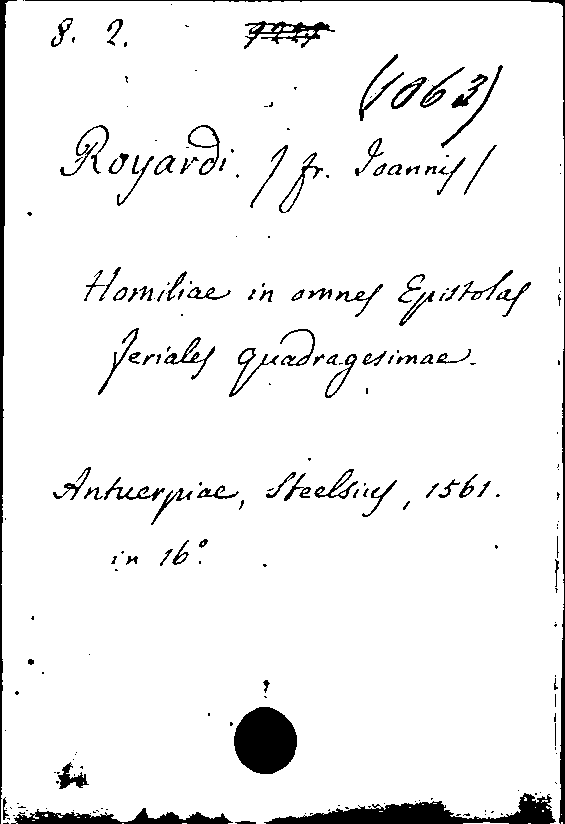 8. 2.
(1063)
Royardi. / fr. Ioannis /
Homiliae in omnes Epistolas
feriales quadragesimae.
Antuerpiae, Steelsius, 1561.
in 16°.